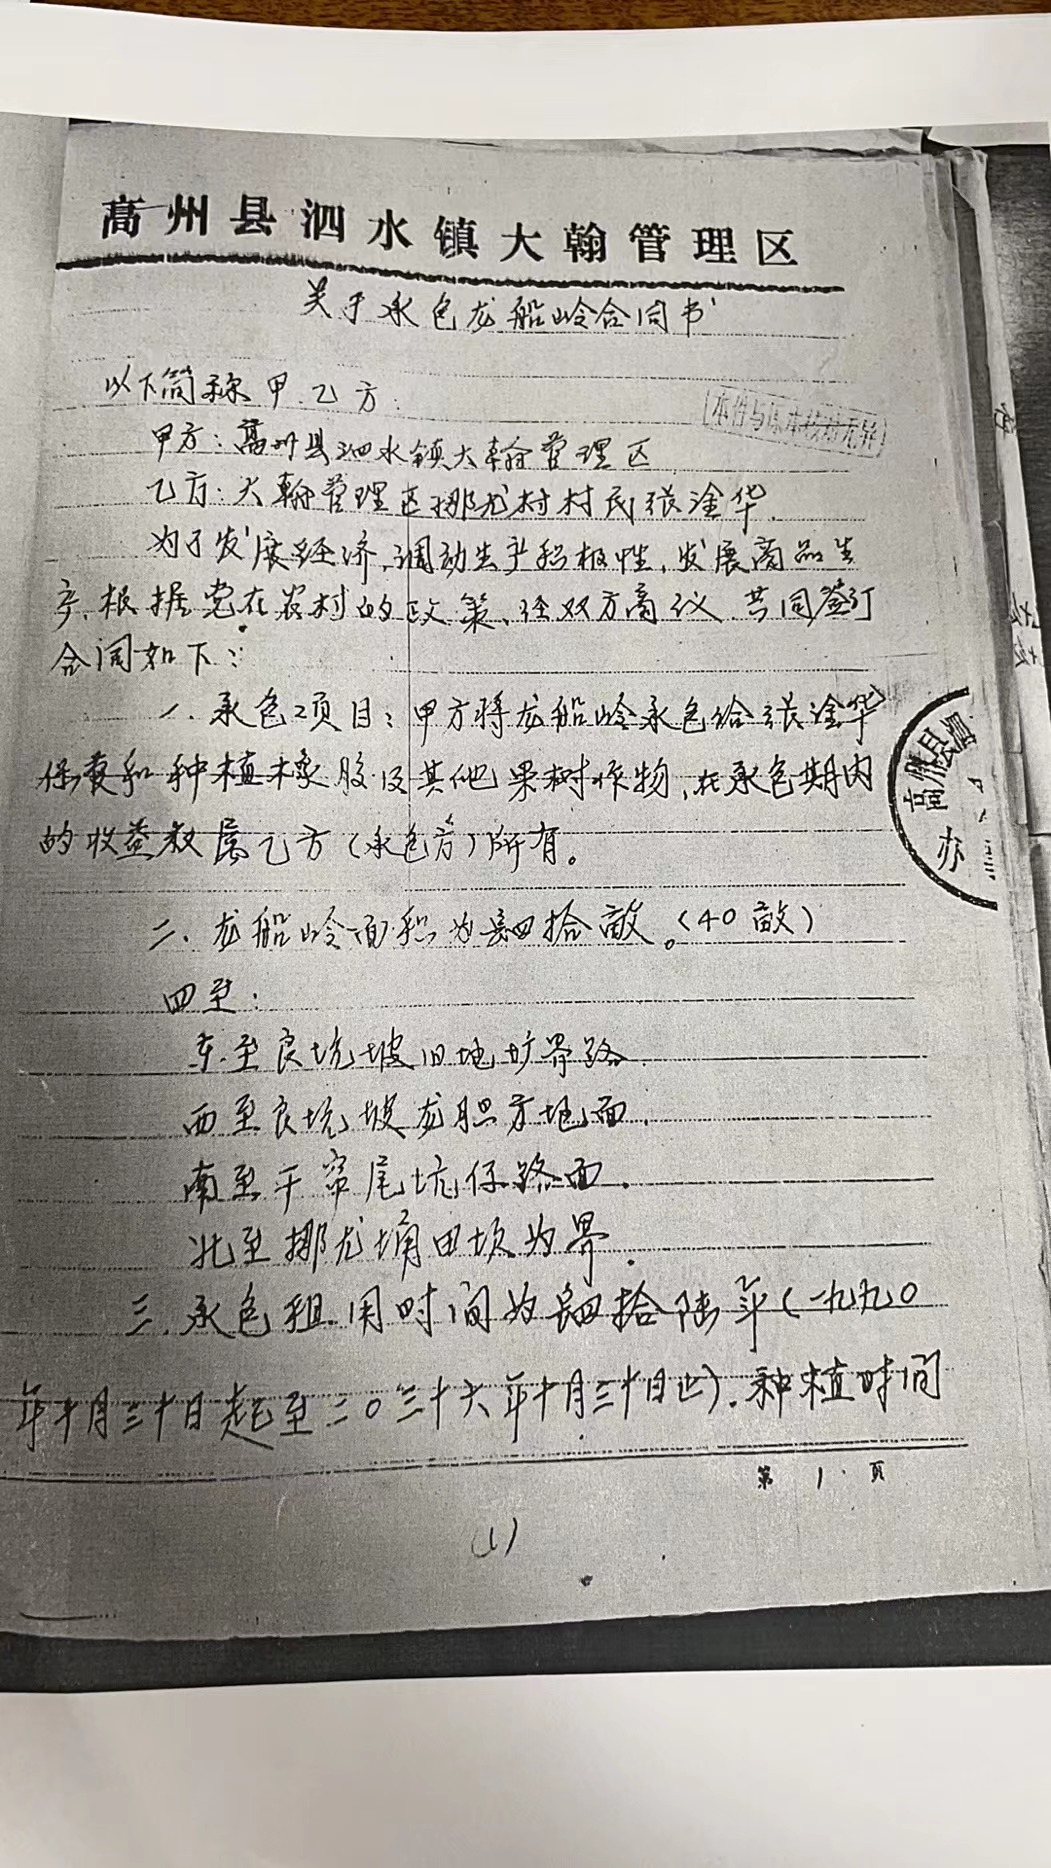 高州县泗水镇大翰管理区
关于承包龙船岭合同书
以下简称甲.乙方.
本件与原本核对无异
甲方:高州县泗水镇大翰管理区
乙方:大翰管理区挪龙村村民张淦华.
为了发展经济,调动生产积极性,发展商品生
产,根据党在农村的政策,经双方商议,共同签订
合同如下:
一.承包项目:甲方将龙船岭承包给张淦华
保养和种植橡胶及其他果树作物,在承包期内
的收益权属乙方(承包方)所有。
高州县
办
二.龙船岭面积为肆拾亩。(40亩)
四至:
东至良坑坡旧地圹界路
西至良坑坡龙胆方地面.
南至干帘尾坑仔路面.
北至挪龙埇田坎为界.
三.承包租用时间为肆拾陆年(一九九〇
年十月三十日起至二〇三十六年十月三十日止).种植时间
第1页
(1)